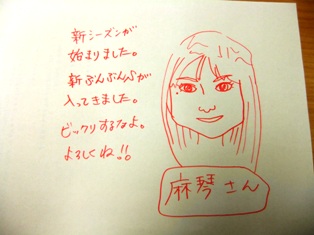 新シーズンが
始まりました。
新ぶんぶんが
入ってきました。
ビックリするなよ。
よろしくね!!
麻琴さん